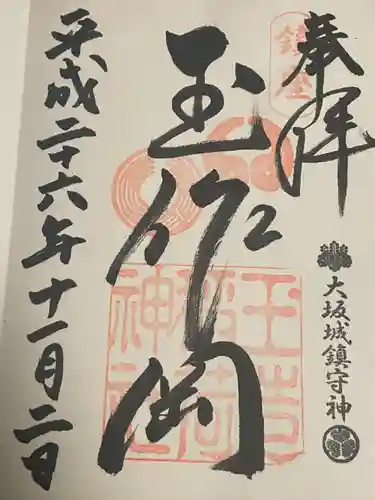 奉拝
大坂城鎮守神
鎮座
玉作岡
玉造稲荷神社
平成二十六年十一月二日